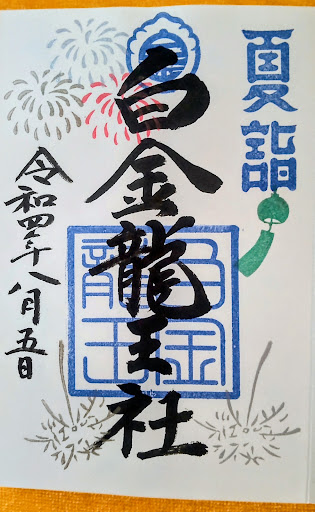 夏詣
白金龍王社
令和四年八月五日
白金
龍王